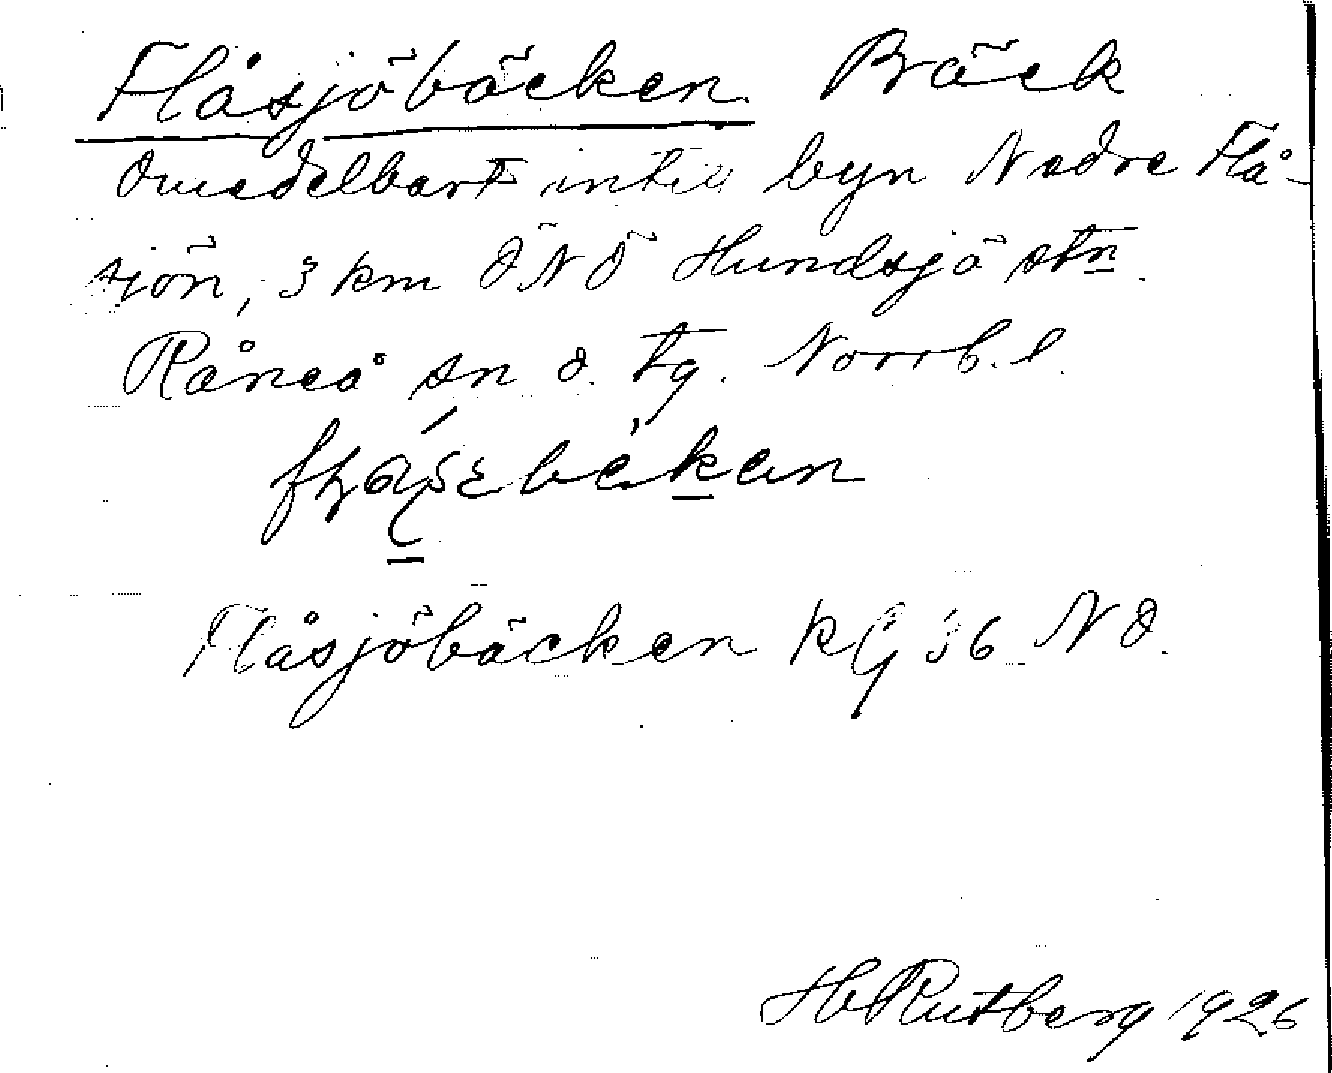 Flåsjöbäcken Bäck
Omedelbart intill byn Nedre Flå-
sjön, 3 km ÖNÖ Hundsjö stn.
Råneå sn o. tg. Norrb. l.
Flåsjöbäcken KG 36 NO.
H Rutberg 1926